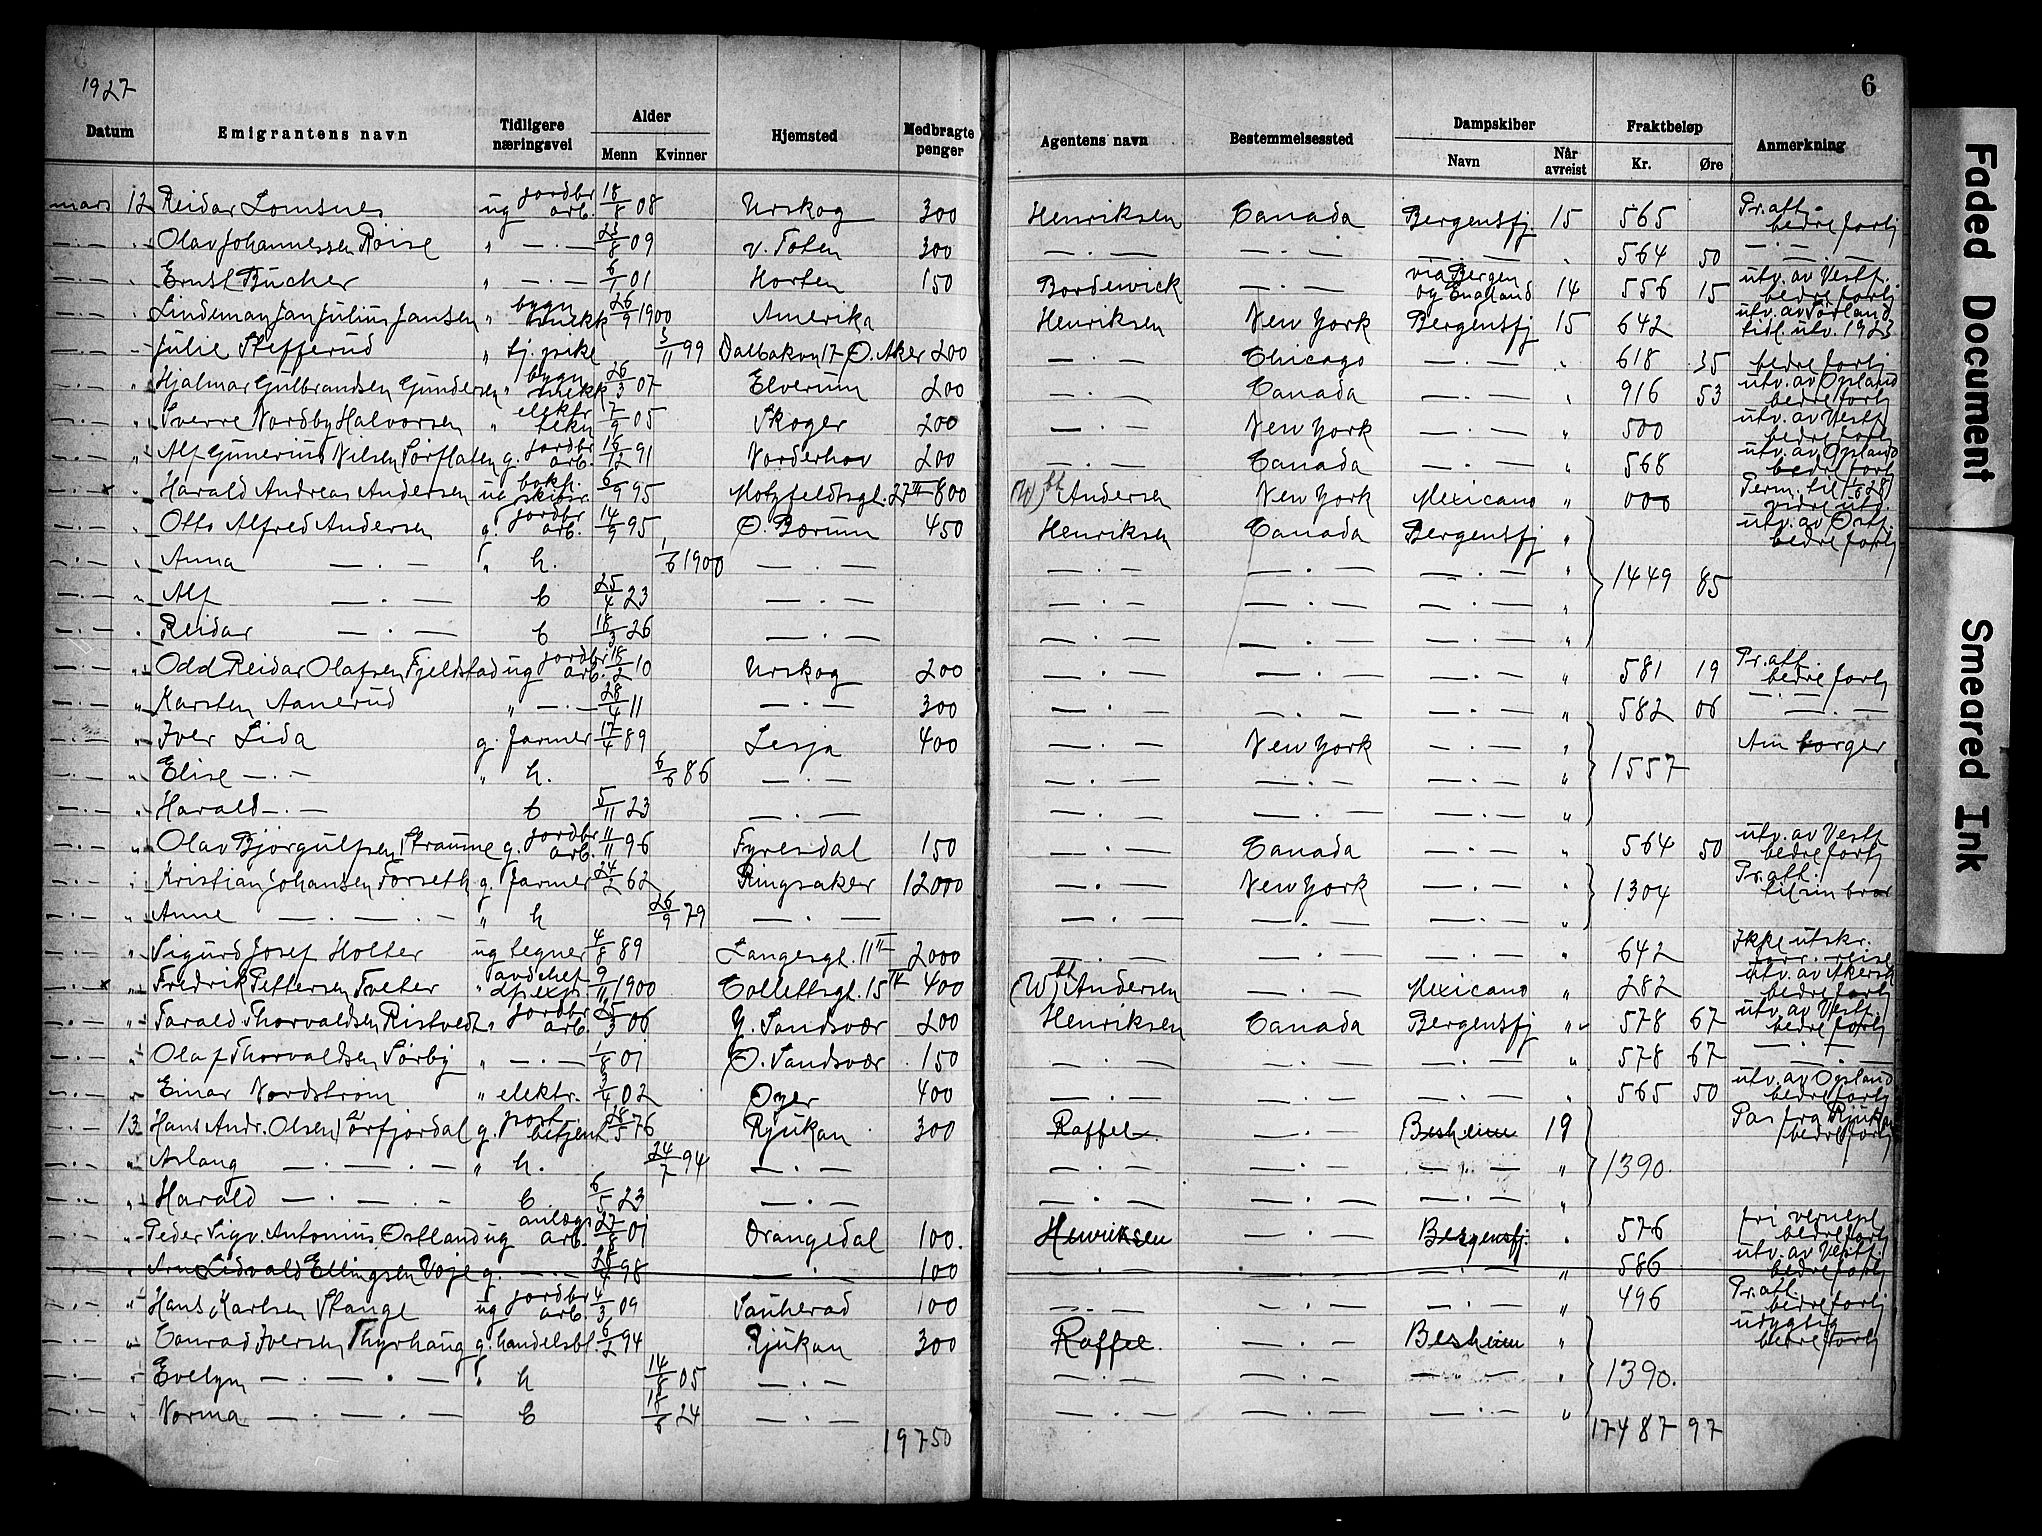 1927
6
Datum Emigrantens navn Tidligere næringsvei Alder Menn Kvinner Hjemsted Medbragte penger Agentens navn Bestemmelsessted Dampskiber Navn Når avreist Fraktbeløp Kr. Øre Anmerkning
mars 12 Reidar Lomsnes ug jordbr arb. 18/8 08 Urskog 300 Henriksen Canada Bergensfj. 15 565 Pr. att. bedre forhj
" Olav Johannessen Röise " — . — 23/8 09 v. Toten 300 — . — — . — — . — " 564 50 — . —
" Ernst Bucher " — . — 6/1 01 Horten 150 Bordewick — . — via Bergen og England 14 556 15 utv. av Vestf. bedre forhj
" Lindeman Jan Julius Jansen " bygn snekk 26/9 1900 Amerika Henriksen New York Bergensfj 15 642 utv. av Sörland tidl. utv. 1923
" Julie Skefferud " tj. pike 3/11 99 Dalbakvn 17 Ö. Aker 200 — . — Chicago — . — " 618 35 bedre forhj
" Hjalmar Gulbrandsen Gundersen " bygn snekk 26/3 07 Elverum 200 — . — Canada — . — " 916 53 utv. av Opland bedre forhj
" Sverre Nordby Halvorsen " elektr tekn 7/9 05 Skoger 200 — . — New York — . — " 500 utv. av Vestf bedre forhj
" Alf Gunerius Nilsen Sörflaten g. jordbr arb. 16/2 91 Norderhov 200 — . — Canada — . — " 568 utv. av Opland bedre forhj
x Harald Andreas Andersen ug bokh. 6/9 95 Motzfeldtsgt. 27 III 800 (W) Andersen New York Mexicano " 000 Perm. til 1/6 28
" Otto Alfred Andersen g. jordbr arb. 14/9 95 Ö. Bærum 450 Henriksen Canada Bergensfj " utv. av Östf. bedre forhj
" Anna — . — " h. 1/6 1900 — . — — . — — . — — . — " 1449 85
" Alf — . — b 25/4 23 — . — — . — — . — — . — "
" Reidar — . — b 18/3 26 — . — — . — — . — — . — "
" Odd Reidar Olafsen Fjeldstad ug jordbr arb. 18/2 10 Urskog 200 — . — — . — — . — " 581 19 Pr. att. bedre forhj
" Karsten Aanerud " — . — 28/4 11 — . — 300 — . — — . — — . — " 582 06 — . —
" Iver Lida g. farmer 17/4 89 Lesja 400 — . — New York — . — " Am borger
" Elise — . — " h. 6/6 86 — . — — . — — . — — . — " 1557
" Harald — . — b 5/11 23 — . — — . — — . — — . — "
" Olav Björgulfsen Straume g. jordbr arb. 11/11 96 Fyresdal 150 Canada — . — " 564 50 utv. av Vestf. bedre forhj
" Kristian Johansen Forseth g. farmer 24/2 62 Ringsaker 12000 New York — . — " 1304 Pr. att. til sin bror
" Anne — . — " h 26/9 79 — . — — . — — . — "
" Sigurd Josef Holter ug tegner 4/8 89 Langesgt. 11 II 2000 — . — — . — " 642 Ikke utskr.
x Fredrik Pettersen Tveter " 9/11 1900 Collettsgt. 15 IV 400 (W) Andersen — . — Mexicano " 282 utv. av Akersh bedre forhj
" Tarald Thorvaldsen Ristvedt " jordbr arb. 25/3 06 Y. Sandsvær 200 Henriksen Canada Bergensfj " 578 67 utv. av Vestf. bedre forhj
" Olaf Thorvaldsen Sörby " — . — 1/8 01 Ö. Sandsvær 150 — . — — . — — . — " 578 67 — . —
" Einar Nordström " elektr. 3/4 02 Öyer 400 — . — — . — — . — " 565 50 utv. av Opland bedre forhj
13 Hans Andr. Olsen Sörfjordal g. post betjent 28/5 76 Rjukan 300 Raffel Besheim 19 Pas fra Rjukan bedre forhj
" Aslaug — . — " h. 24/7 94 — . — — . — — . — — . — " 1390.
" Harald — . — b 6/5 23 — . — — . — — . — — . — "
" Peder Sigv. Antonius Östland ug anlegs arb. 27/8 01 Drangedal 100. Henriksen — . — Bergensfj. " 576 fri vernepl bedre forhj
" Arne Lidvald Ellingsen Voje g. — . — 98 — . — 100 — . — — . — — . — " 586 utv. av Vestf. bedre forhj
" Hans Karlsen Stange ug jordbr arb. 4/3 09 Sauherad 100 — . — — . — — . — " 496 Pr. att. bedre forhj
" Conrad Iversen Thyrhaug g. handelsbt. 6/2 94 Rjukan 300 Raffel — . — Besheim " udygtig bedre forhj
" Evelyn — . — " h 14/8 05 — . — — . — — . — — . — " 1390.
" Norma — . — b 18/8 24 — . — — . — — . — — . — "
19750 17487 97
Faded Document
Smeared Ink